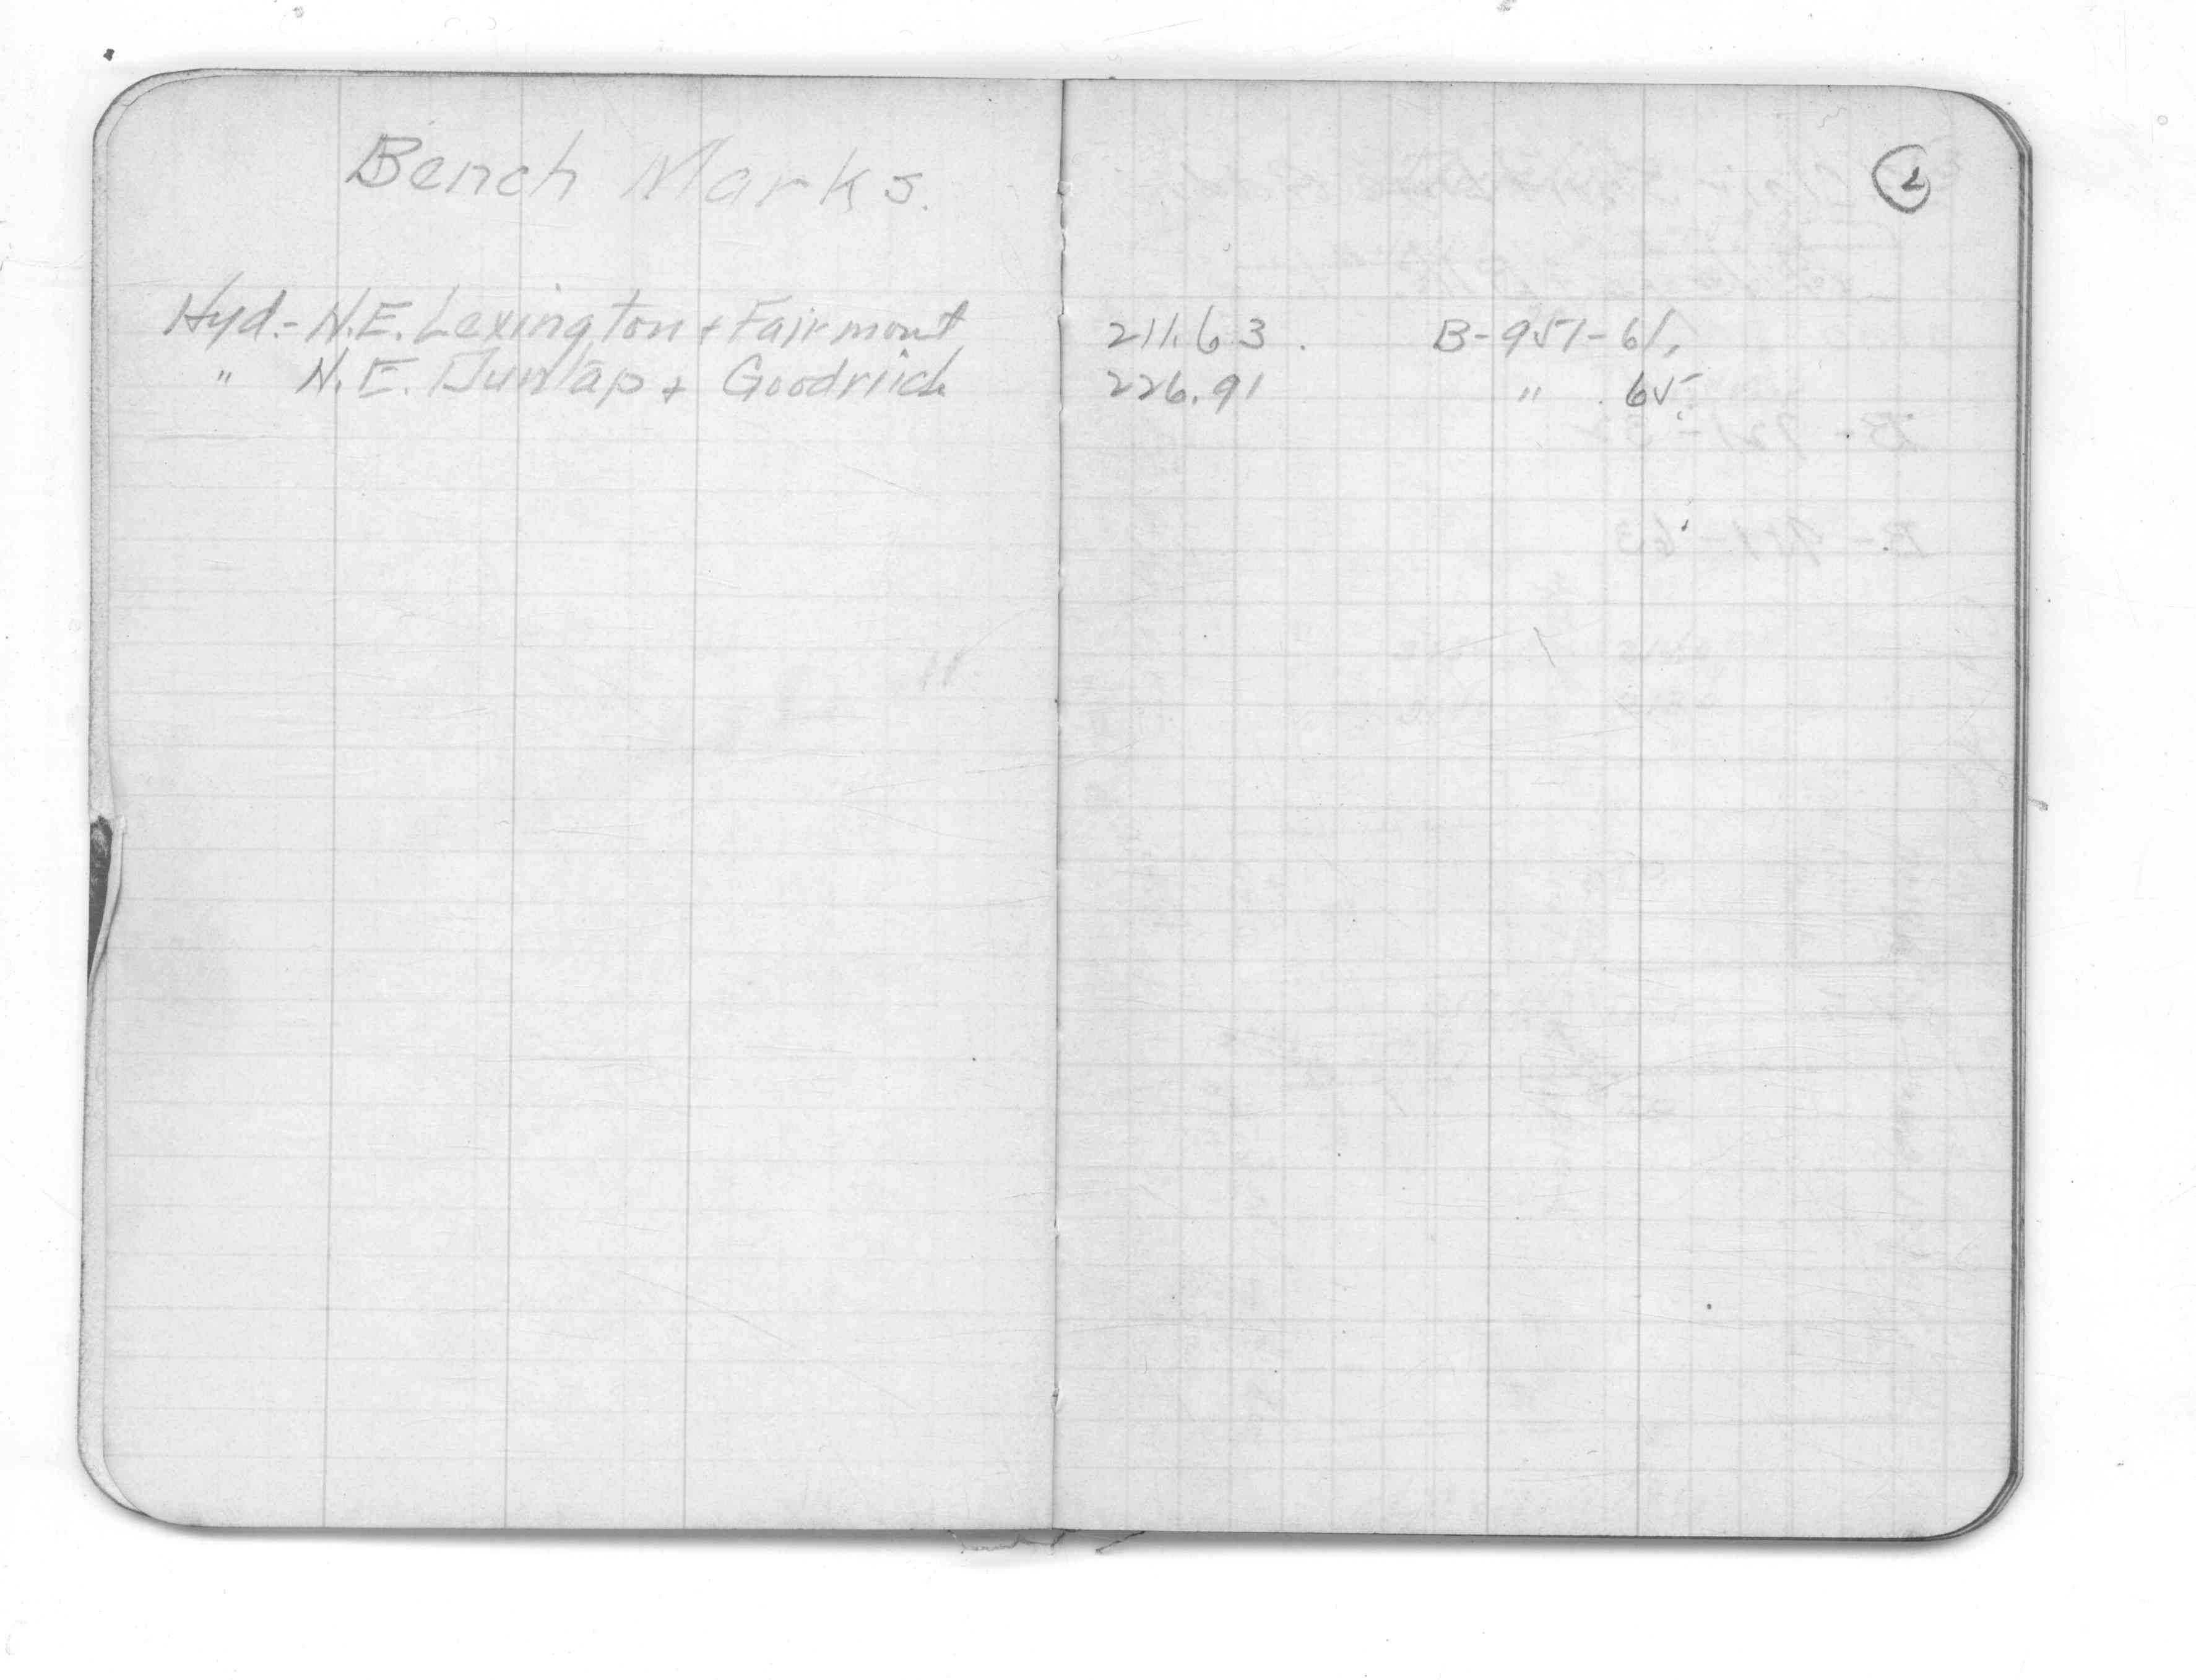 Bench Marks.
2
Hyd.- N.E. Lexington + Fairmount 211.63. B-951-61.
" N.E. Dunlap + Goodrich 226.91 " 65.